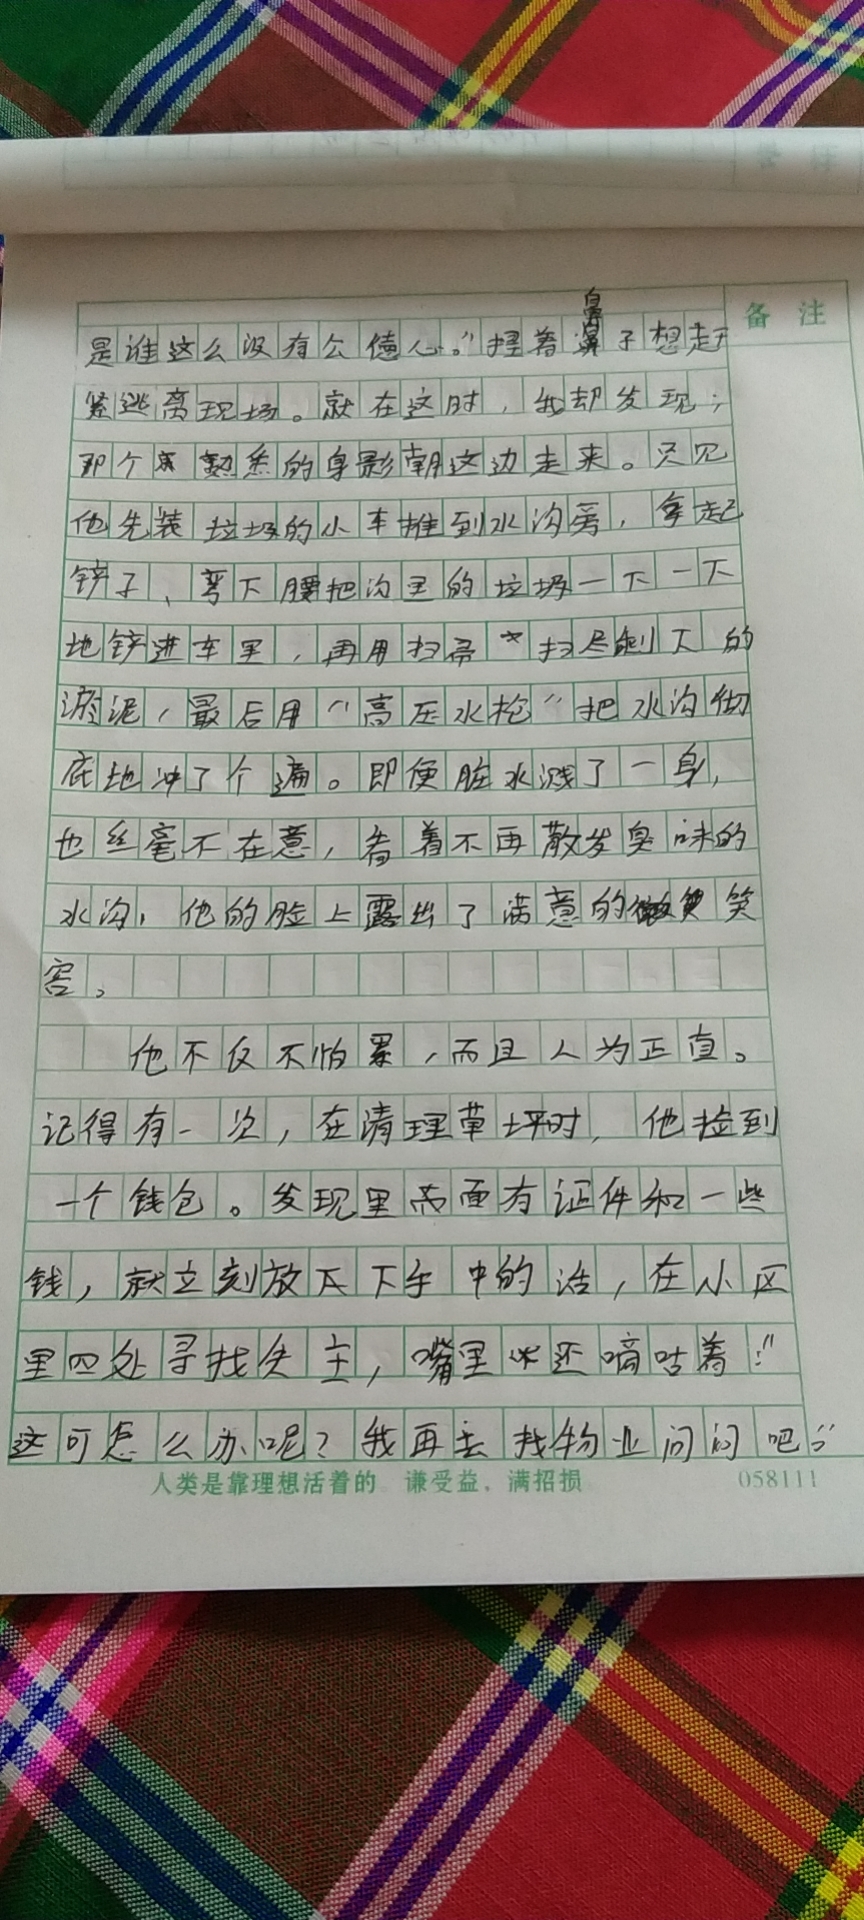 备注
是谁这么没有公德心。”捏着鼻子想赶
紧逃离现场。就在这时，我却发现；
那个熟悉的身影朝这边走来。只见
他先装垃圾的小车推到水沟旁，拿起
铲子、弯下腰把沟里的垃圾一下一下
地铲进车里，再用扫帚扫尽剩下的
淤泥，最后用“高压水枪”把水沟彻
底地冲了个遍。即便脏水溅了一身，
也丝毫不在意，看着不再散发臭味的
水沟，他的脸上露出了满意的笑
容。
他不仅不怕累，而且人为正直。
记得有一次，在清理草坪时，他捡到
一个钱包。发现里面有证件和一些
钱，就立刻放下手中的活，在小区
里四处寻找失主，嘴里还嘀咕着：“
这可怎么办呢？我再去找物业问问吧。”
人类是靠理想活着的 谦受益，满招损 058111